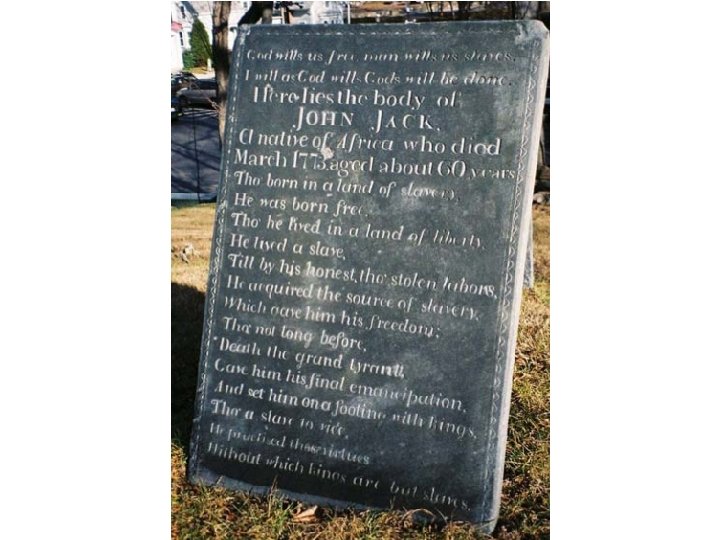 God wills us free, man wills us slaves.
I will as God wills Gods will be done.
Here lies the body of
JOHN JACK.
A native of Africa who died
March 1773 aged about 60 years
Tho' born in a land of slavery,
He was born free.
Tho' he lived in a land of liberty,
He lived a slave,
Till by his honest, tho' stolen labors,
He acquired the source of slavery,
Which gave him his freedom;
Tho' not long before,
Death the grand tyrant,
Gave him his final emancipation,
And set him on a footing with kings.
Tho' a slave to vice,
He practised those virtues
Without which kings are but slaves.